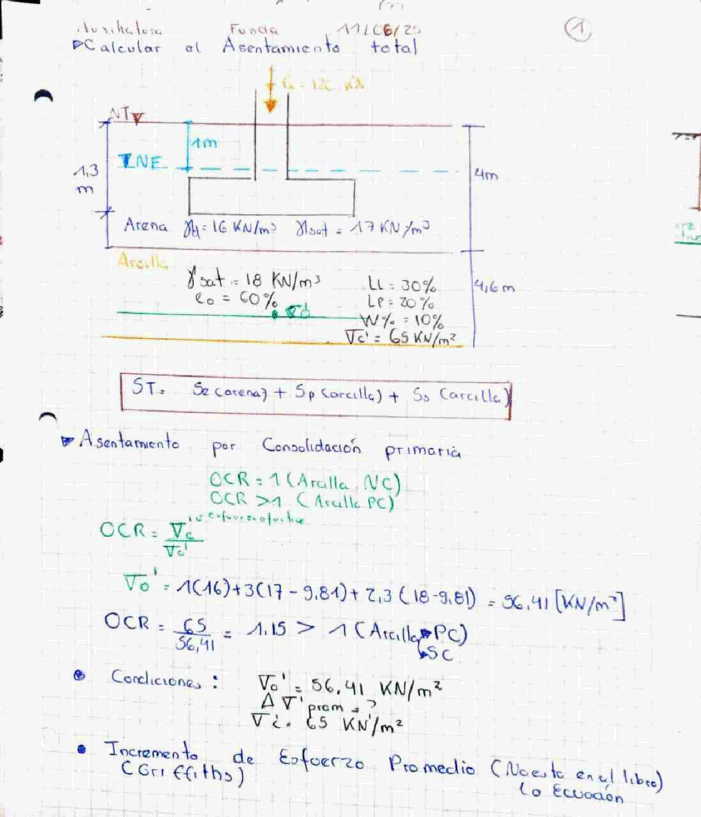 Auxiliatura Funda 11/06/25
①
▶Calcular el Asentamiento total
NT
1m
1,3 m
INE
4m
Arena γh = 16 KN/m³ γsat = 17 KN/m³
Arcilla
γsat = 18 KN/m³ LL = 30%
e₀ = 60% LP = 20%
W% = 10%
σc' = 65 KN/m²
4,6 m
ST = Se (arena) + Sp (arcilla) + Ss (arcilla)
▶Asentamiento por Consolidación primaria
OCR = 1 (Arcilla NC)
OCR > 1 (Arcilla PC)
OCR = σc' / σo'
σo' = 1(16) + 3(17 - 9.81) + 2,3 (18 - 9,81) = 56,41 [KN/m²]
OCR = 65 / 56,41 = 1.15 > 1 (Arcilla PC)
SC
• Condiciones : σo' = 56.41 KN/m²
Δσ'prom = ?
σc' = 65 KN/m²
• Incremento de Esfuerzo Promedio (No esta en el libro)
(Griffiths) la Ecuación